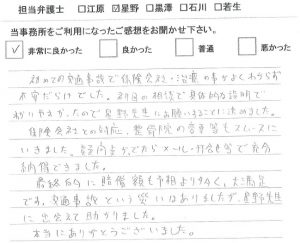 担当弁護士 □江原 ☑星野 □黒澤 □石川 □若生
当事務所をご利用になったご感想をお聞かせ下さい。
☑ 非常に良かった □ 良かった □ 普通 □ 悪かった
初めての交通事故で保険会社・治療の事がよくわからず
不安だらけでした。初回の相談で具体的な説明で
わかりやすかったので星野先生にお願いすることに決めました。
保険会社との対応、整骨院の変更等もスムーズに
いきました。疑問点が出てからメール・打合せ等で
納得できました。
最終的に賠償額も予想より多く、大満足
です。交通事故という災いはありましたが、星野先生
に出会えて助かりました。
本当にありがとうございました。